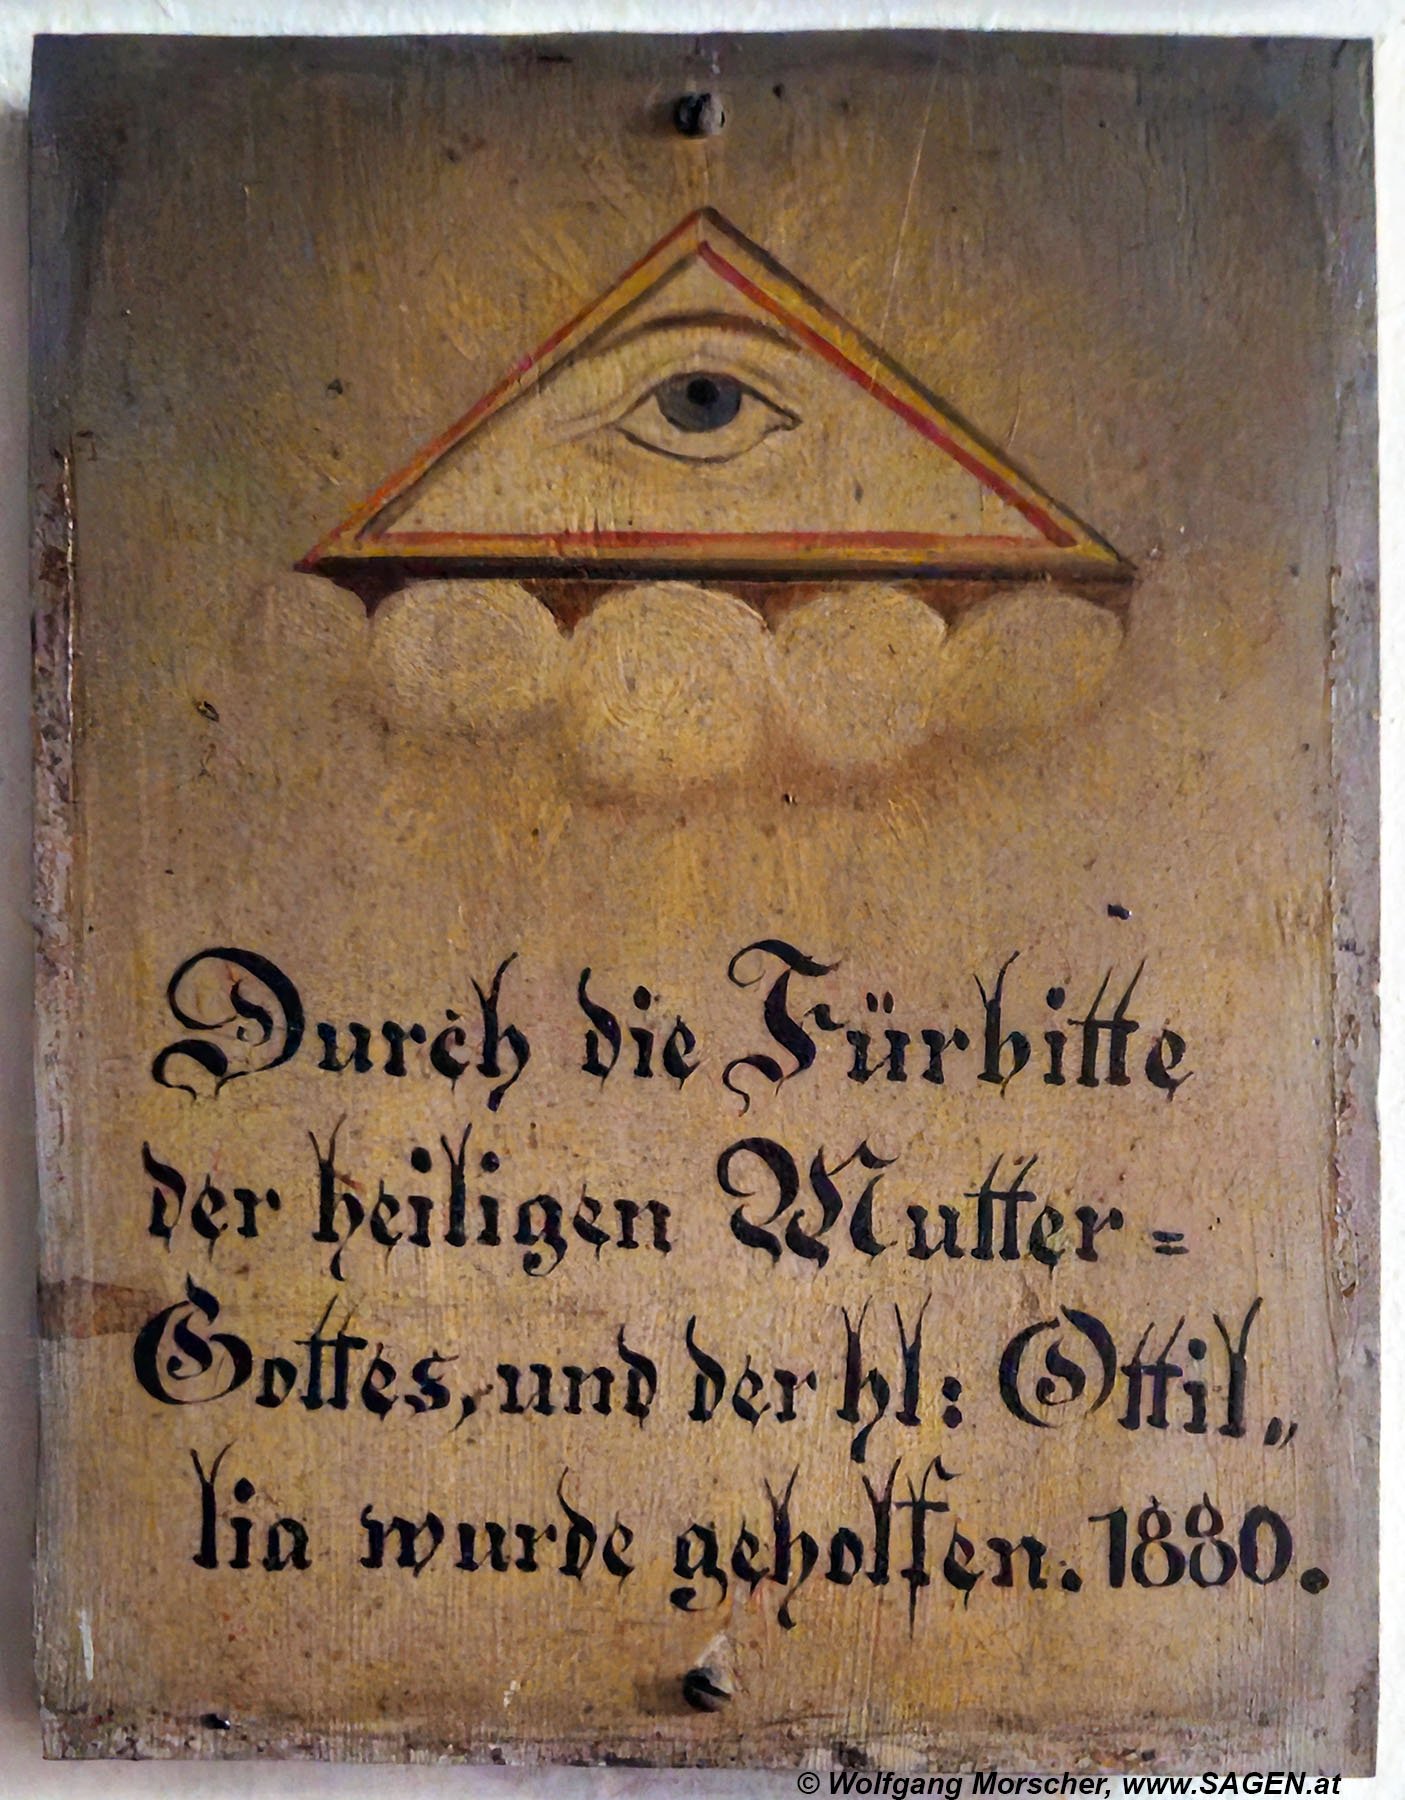 Durch die Fürbitte
der heiligen Mutter=
Gottes, und der hl: Ottil„
lia wurde geholfen. 1880.
© Wolfgang Morscher, www.SAGEN.at